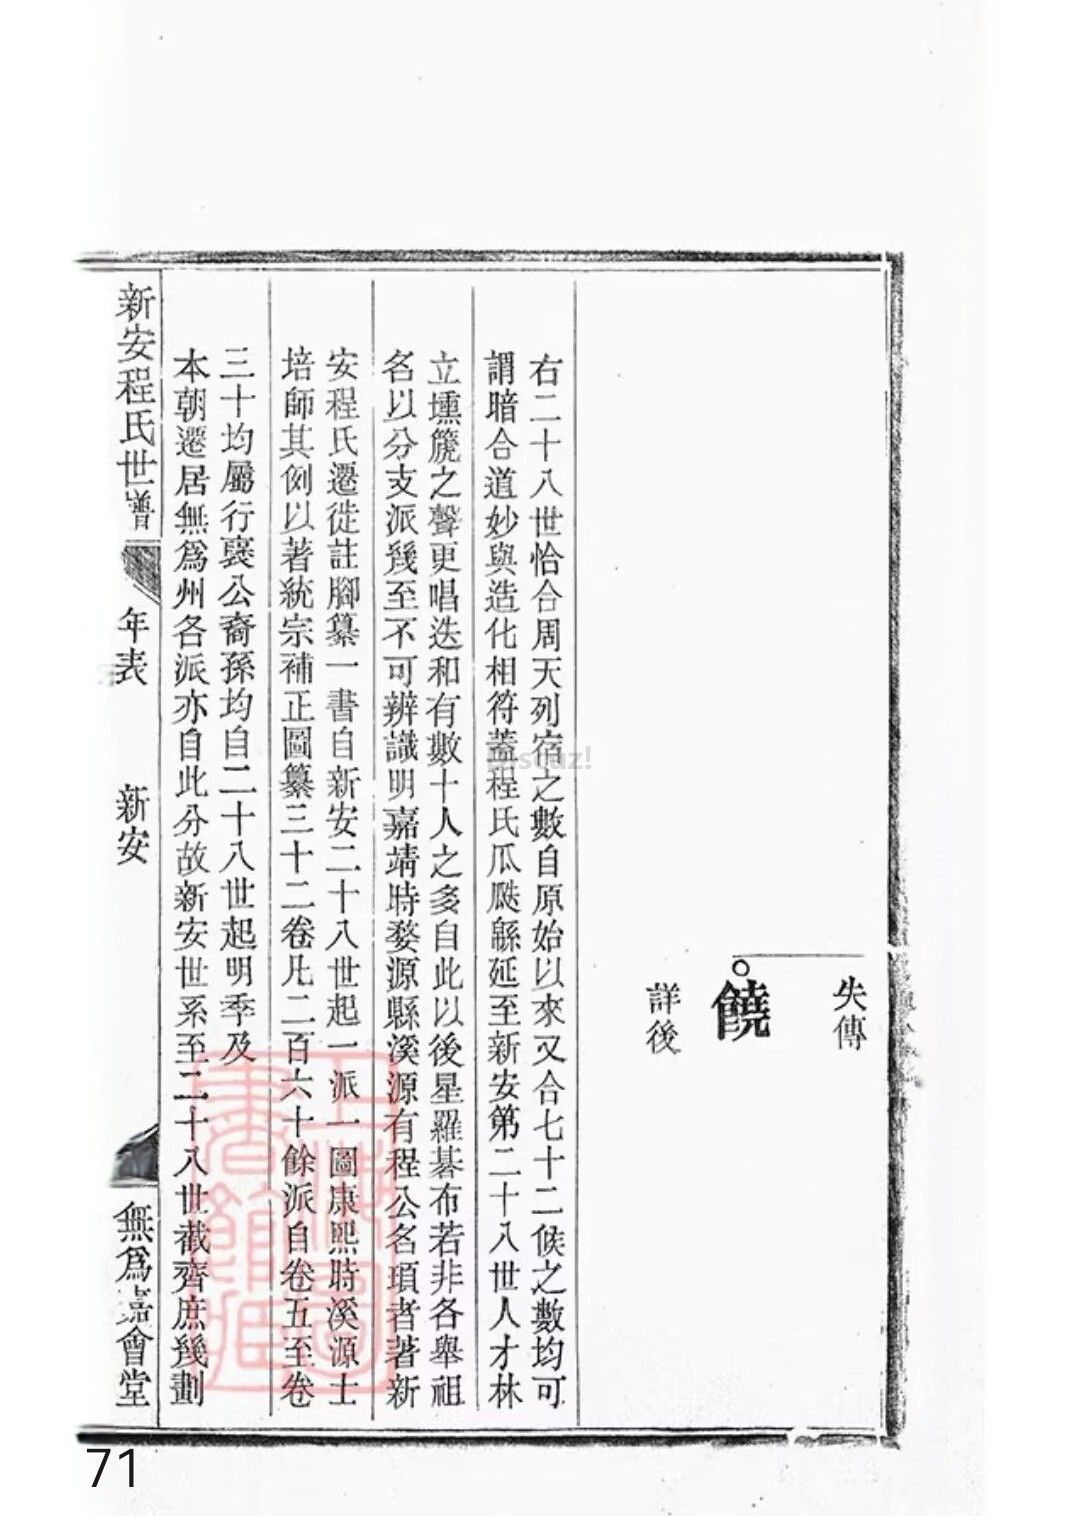 失傳
饒
詳後
右二十八世恰合周天列宿之數自原始以來又合七十二候之數均可
謂暗合道妙與造化相符蓋程氏瓜瓞緜延至新安第二十八世人才林
立壎篪之聲更唱迭和有數十人之多自此以後星羅碁布若非各舉祖
名以分支派幾至不可辨識明嘉靖時婺源縣溪源有程公名項者著新
安程氏遷徙註腳纂一書自新安二十八世起一派一圖康熙時溪源士
培師其例以著統宗補正圖纂三十二卷凡二百六十餘派自卷五至卷
三十均屬行襃公裔孫均自二十八世起明季及
本朝遷居無爲州各派亦自此分故新安世系至二十八世截齊庶幾劃
新安程氏世譜
年表
新安
無爲嘉會堂
上海圖書館藏
Discuz!
71